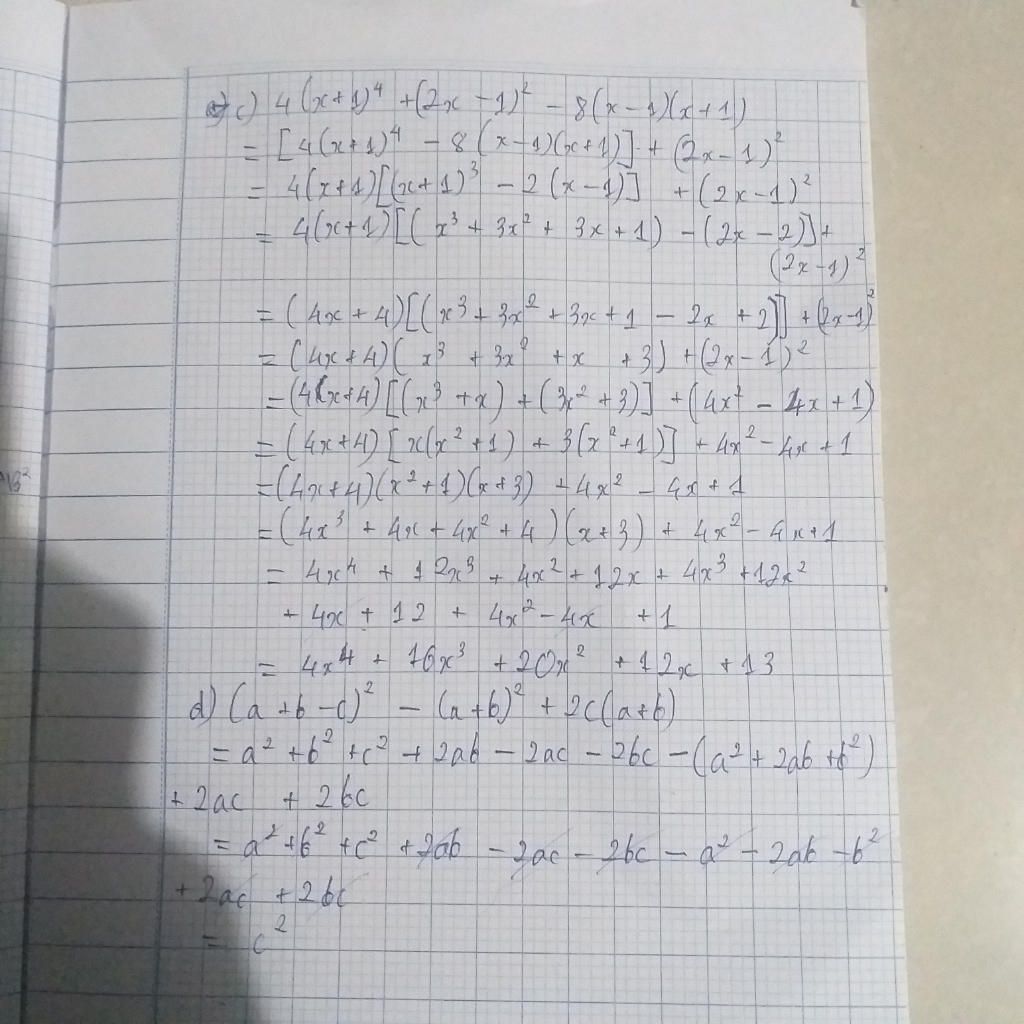 c) 4(x+1)⁴ + (2x - 1)² - 8(x - 1)(x + 1)
= [4(x+1)⁴ - 8(x-1)(x+1)] + (2x-1)²
= 4(x+1)[(x+1)³ - 2(x-1)] + (2x-1)²
= 4(x+1)[(x³ + 3x² + 3x + 1) - (2x - 2)] +
(2x-1)²
= (4x + 4)[(x³ + 3x² + 3x + 1 - 2x + 2)] + (2x-1)²
= (4x+4)(x³ + 3x² + x + 3) + (2x-1)²
= (4x+4)[(x³ + x) + (3x² + 3)] + (4x² - 4x + 1)
= (4x+4)[x(x² + 1) + 3(x² + 1)] + 4x² - 4x + 1
= (4x+4)(x² + 1)(x + 3) + 4x² - 4x + 1
= (4x³ + 4x + 4x² + 4)(x + 3) + 4x² - 4x + 1
= 4x⁴ + 12x³ + 4x² + 12x + 4x³ + 12x²
+ 4x + 12 + 4x² - 4x + 1
= 4x⁴ + 16x³ + 20x² + 12x + 13
d) (a + b - c)² - (a + b)² + 2c(a + b)
= a² + b² + c² + 2ab - 2ac - 2bc - (a² + 2ab + b²)
+ 2ac + 2bc
= a² + b² + c² + 2ab - 2ac - 2bc - a² - 2ab - b²
+ 2ac + 2bc
= c²